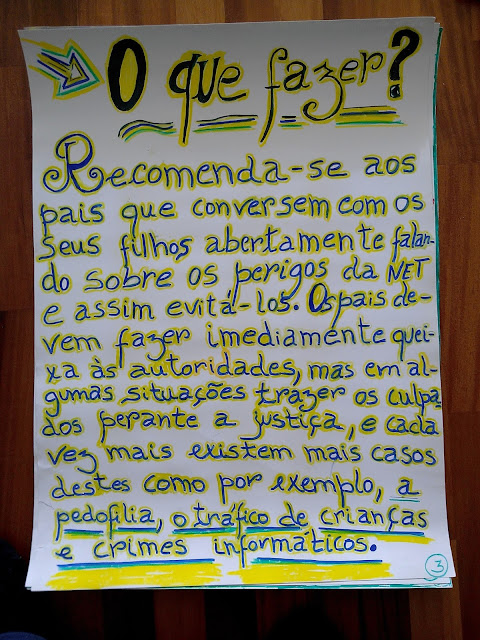 O que fazer?
Recomenda-se aos
pais que conversem com os
seus filhos abertamente falan-
do sobre os perigos da NET
e assim evitá-los. Os pais de-
vem fazer imediamente quei-
xa às autoridades, mas em al-
gumas situações trazer os culpa-
dos perante a justiça, e cada
vez mais existem mais casos
destes como por exemplo, a
pedofilia, o tráfico de crianças
e crimes informáticos.
3